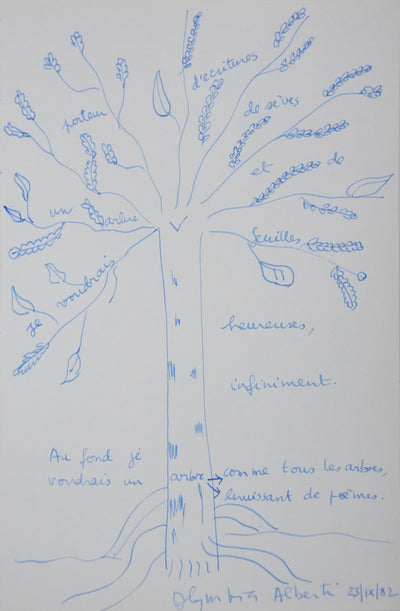 je voudrais
un arbre
porteur
d'écritures
de sèves
et de
feuilles
heureuses,
infiniment.
Au fond je
voudrais un arbre comme tous les arbres,
bruissant de poèmes.
Olympia Alberti 23/IX/82